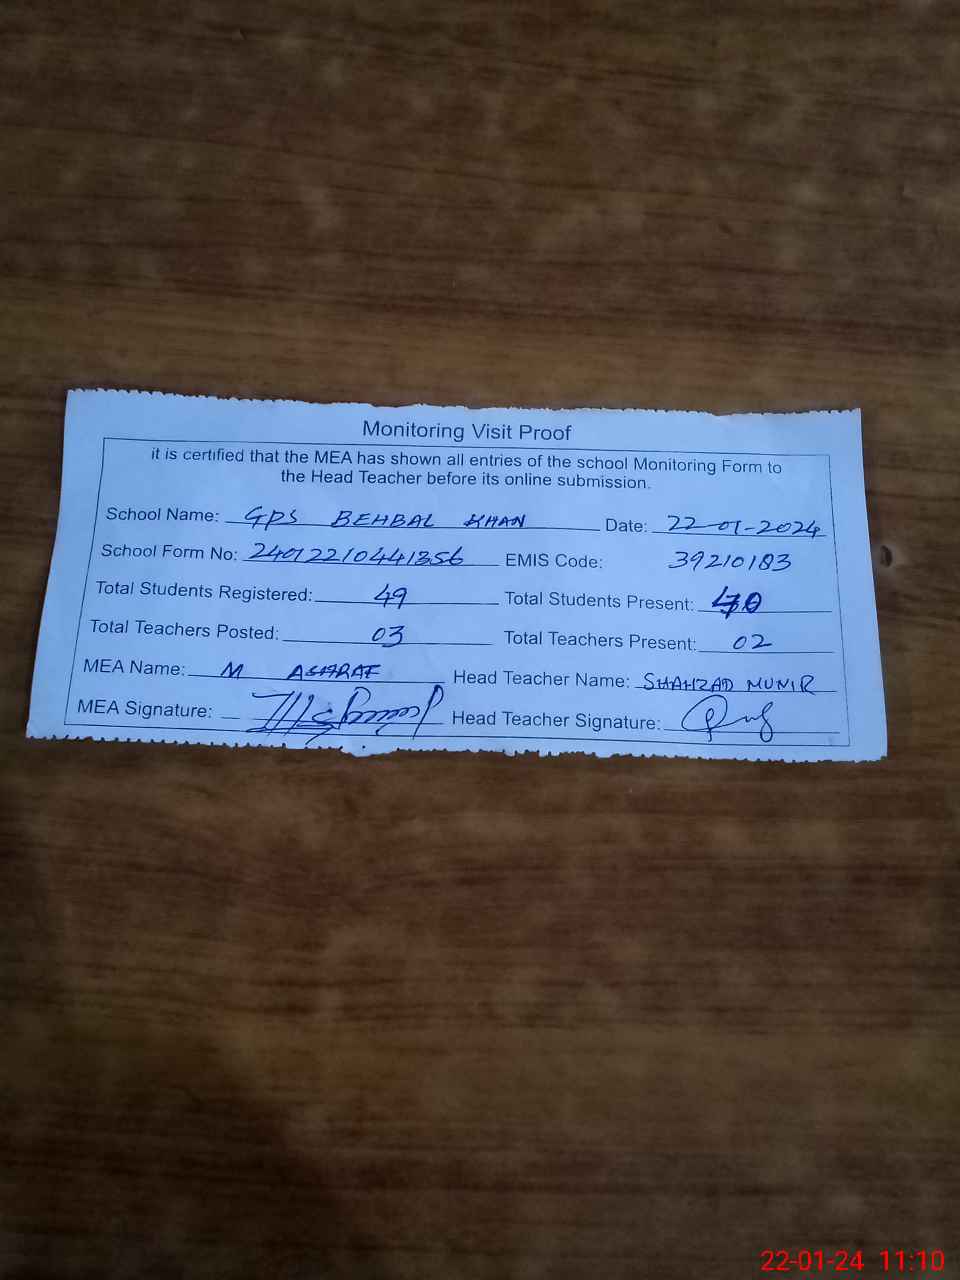 Monitoring Visit Proof
it is certified that the MEA has shown all entries of the school Monitoring Form to
the Head Teacher before its online submission.
School Name: GPS BEHBAL KHAN Date: 22-01-2024
School Form No: 24012210441356 EMIS Code: 39210183
Total Students Registered: 49 Total Students Present: 40
Total Teachers Posted: 03 Total Teachers Present: 02
MEA Name: M ASHRAF Head Teacher Name: SHAHZAD MUNIR
MEA Signature: Head Teacher Signature:
22-01-24 11:10